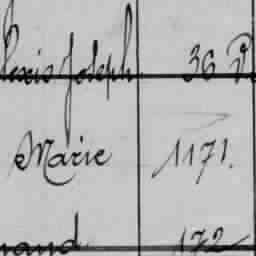 lexis Joseph 36 P
Marie 1171.
nand 172